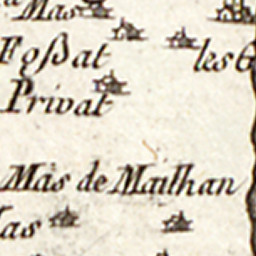 Mas
Foßat
les
Privat
Mas de Mailhan